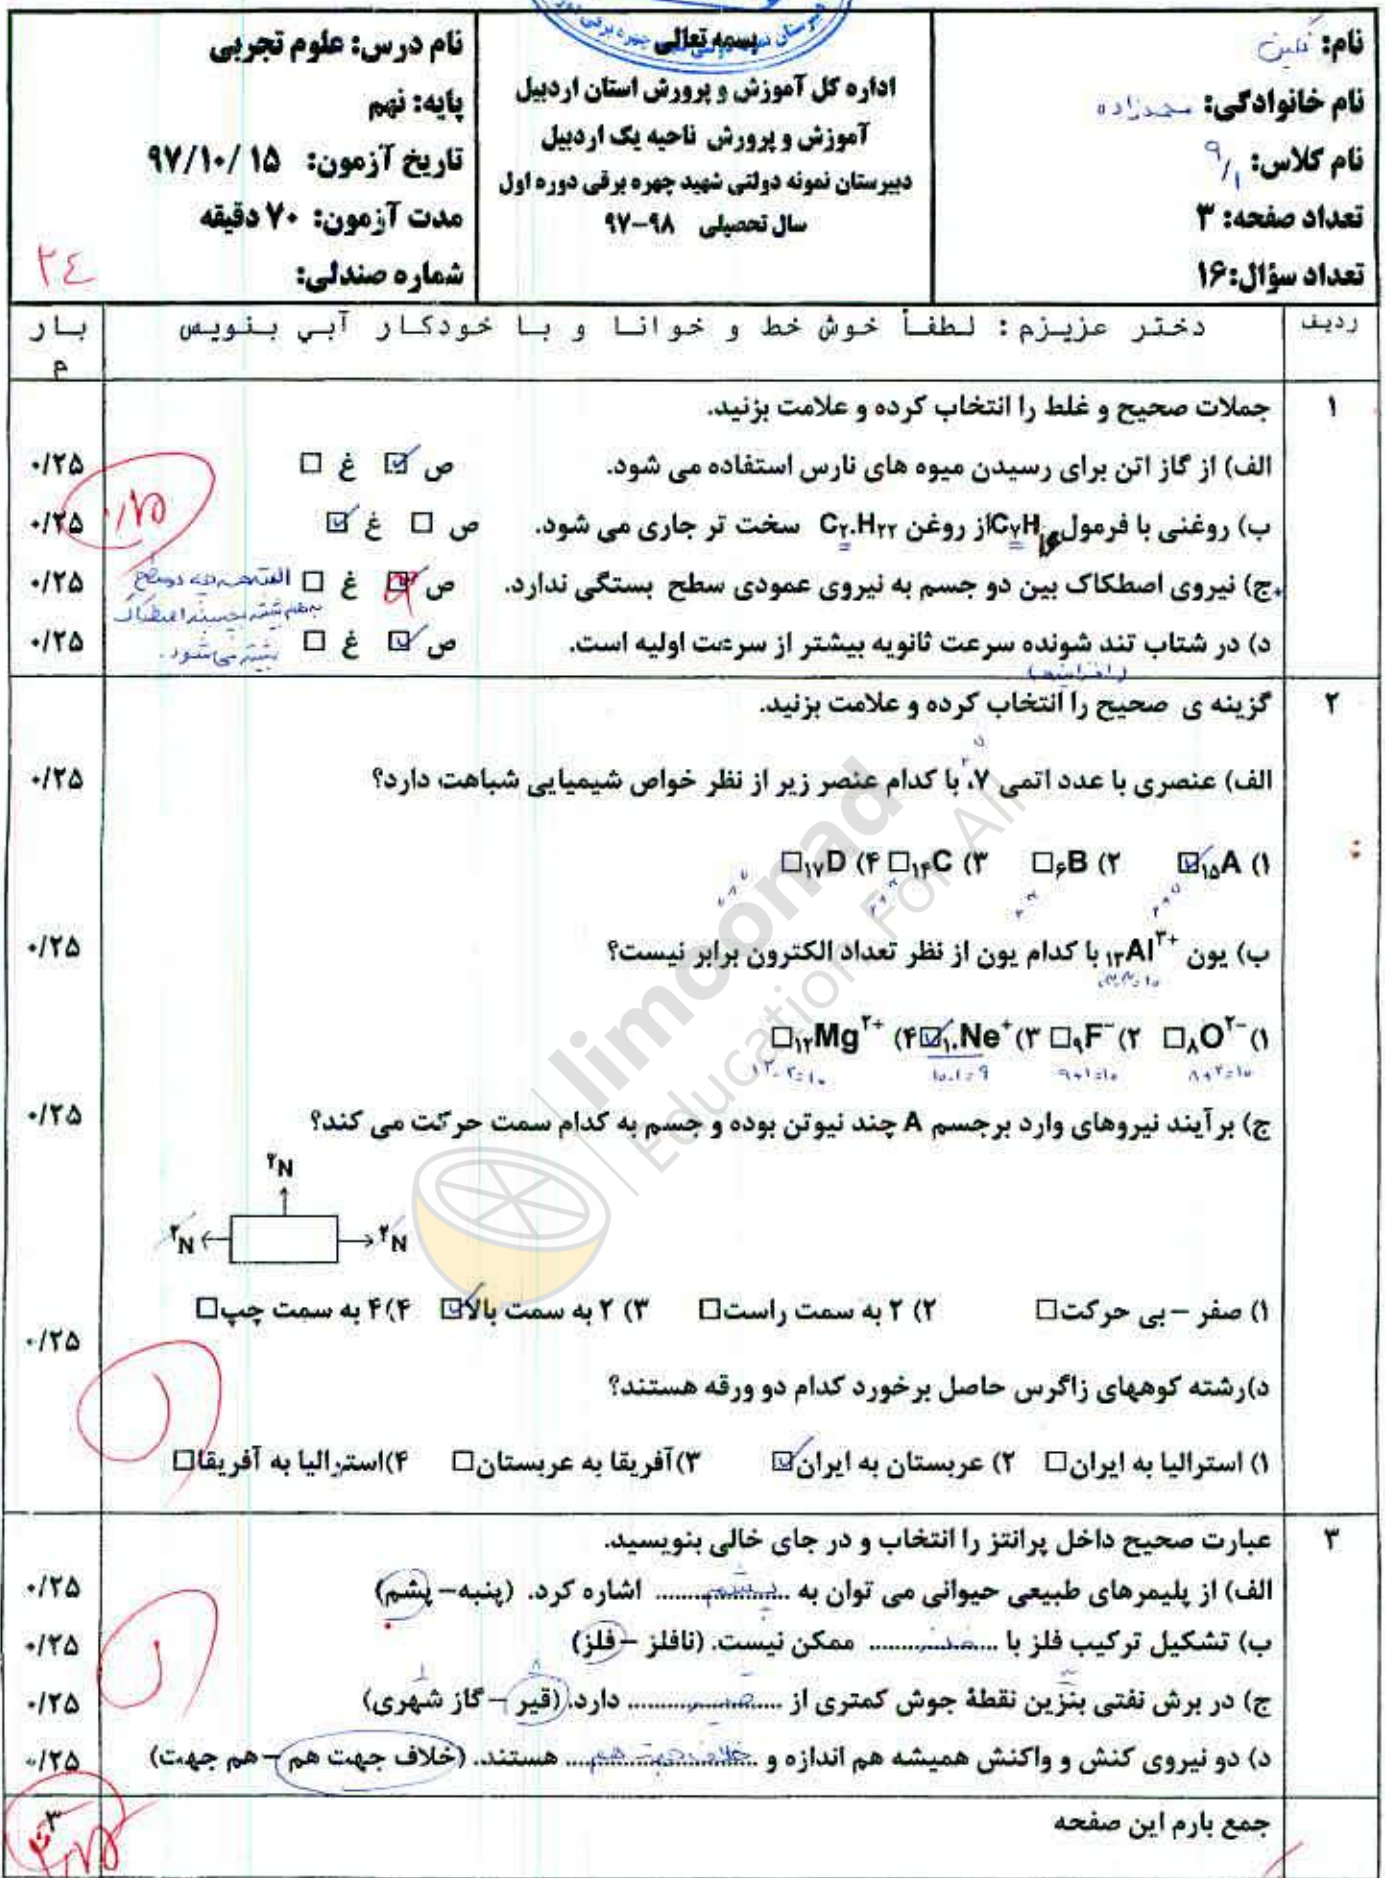 بسمه تعالی
اداره کل آموزش و پرورش استان اردبیل
آموزش و پرورش ناحیه یک اردبیل
دبیرستان نمونه دولتی شهید چهره برقی دوره اول
سال تحصیلی ۹۸-۹۷
نام: نگین
نام خانوادگی:
نام کلاس: ۹/۱
تعداد صفحه: ۳
تعداد سؤال:۱۶
نام درس: علوم تجربی
پایه: نهم
تاریخ آزمون: ۹۷/۱۰/۱۵
مدت آزمون: ۷۰ دقیقه
شماره صندلی:
۲۴
ردیف
دختر عزیزم: لطفاً خوش خط و خوانا و با خودکار آبی بنویس
بارم
۱ جملات صحیح و غلط را انتخاب کرده و علامت بزنید.
الف) از گاز اتن برای رسیدن میوه های نارس استفاده می شود. ص ☑ غ □ ۰/۲۵
ب) روغنی با فرمول C₇H₁₆ از روغن C₂₀H₂₂ سخت تر جاری می شود. ص □ غ ☑ ۰/۲۵
ج) نیروی اصطکاک بین دو جسم به نیروی عمودی سطح بستگی ندارد. ص ☑ غ □ ۰/۲۵
بیشتر می شود.
د) در شتاب تند شونده سرعت ثانویه بیشتر از سرعت اولیه است. ص ☑ غ □ ۰/۲۵
۲ گزینه ی صحیح را انتخاب کرده و علامت بزنید.
الف) عنصری با عدد اتمی ۷، با کدام عنصر زیر از نظر خواص شیمیایی شباهت دارد؟ ۰/۲۵
۱) ₁₅A ☑ ۲) ₆B □ ۳) ₁₄C □ ۴) ₁₇D □
ب) یون ₁₃Al³⁺ با کدام یون از نظر تعداد الکترون برابر نیست؟ ۰/۲۵
۱) ₈O²⁻ □ ۲) ₉F⁻ □ ۳) ₁₀Ne⁺ ☑ ۴) ₁₂Mg²⁺ □
۸+۲=۱۰ ۹+۱=۱۰ ۱۰-۱=۹ ۱۲-۲=۱۰
ج) برآیند نیروهای وارد برجسم A چند نیوتن بوده و جسم به کدام سمت حرکت می کند؟ ۰/۲۵
۲N
۲N ۲N
۱) صفر – بی حرکت □ ۲) ۲ به سمت راست □ ۳) ۲ به سمت بالا ☑ ۴) ۴ به سمت چپ □
د)رشته کوههای زاگرس حاصل برخورد کدام دو ورقه هستند؟ ۰/۲۵
۱) استرالیا به ایران □ ۲) عربستان به ایران ☑ ۳)آفریقا به عربستان □ ۴)استرالیا به آفریقا □
۳ عبارت صحیح داخل پرانتز را انتخاب و در جای خالی بنویسید.
الف) از پلیمرهای طبیعی حیوانی می توان به ..پشم.. اشاره کرد. (پنبه- پشم) ۰/۲۵
ب) تشکیل ترکیب فلز با ..فلز.. ممکن نیست. (نافلز – فلز) ۰/۲۵
ج) در برش نفتی بنزین نقطهٔ جوش کمتری از ..قیر.. دارد. (قیر – گاز شهری) ۰/۲۵
د) دو نیروی کنش و واکنش همیشه هم اندازه و ..خلاف جهت هم.. هستند. (خلاف جهت هم – هم جهت) ۰/۲۵
جمع بارم این صفحه ۳
limoonad
Education For All